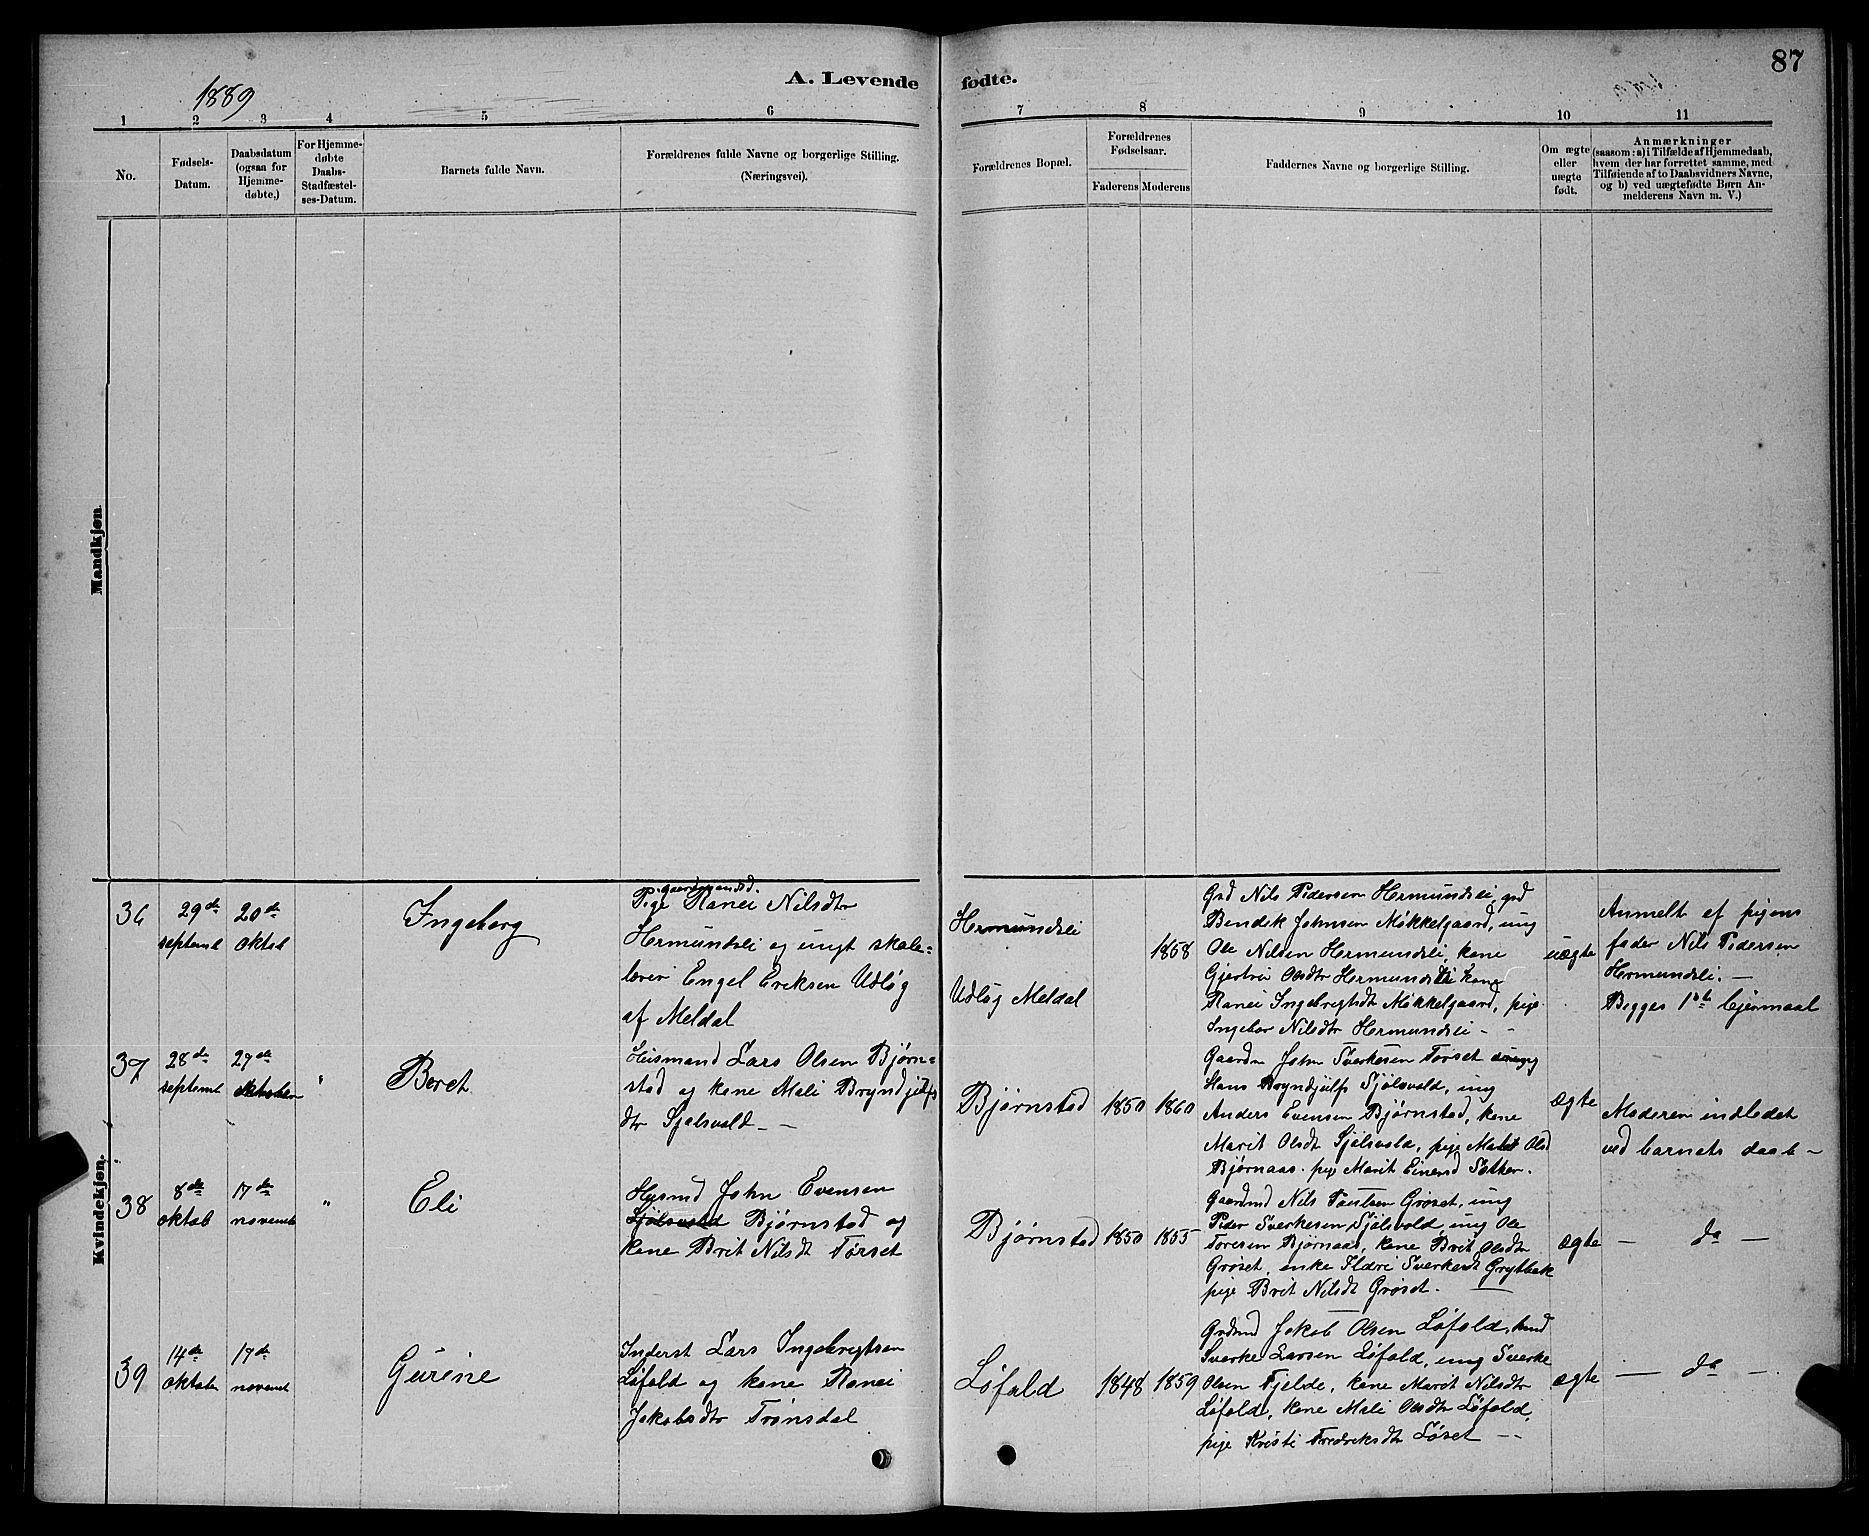 87
1889
A. Levende fødte.
1 2 3 4 5 6 7 8 9 10 11
No.
Fødsels-
Datum.
Daabsdatum
(ogsaa for
Hjemme-
døbte,)
For Hjemme-
døbte
Daabs-
Stadfæstel-
ses-Datum.
Barnets fulde Navn.
Forældrenes fulde Navne og borgerlige Stilling.
(Næringsvei).
Forældrenes Bopæl.
Forældrenes
Fødselsaar.
Faderens Moderens
Faddernes Navne og borgerlige Stilling.
Om ægte
eller
uægte
født.
Anmærkninger
(saasom: a) i Tilfælde af Hjemmedaab,
hvem der har forrettet samme, med
Tilføiende af to Daabsvidners Navne,
og b) ved uægtefødte Børn An-
melderens Navn m. V.)
Mandkjøn
Kvindekjøn.
36
29de
septemb
20de
oktob
Ingeborg
gaardmandsd.
Pige Ranei Nilsdtr
Hermundsli og ungt skole-
lærer Engel Eriksen Udløg
af Meldal
Hermundsli
Udløg Meldal
1858
Grd Nils Pedersen Hermundsli, grd
Bendik Johnsen Mökkelgaard, ung
Ole Nilsen Hermundsli, kone
Gjertru Olsdtr Hermundsli kone
Ranei Ingebrigtsdt Mökkelgaard, pige
Ingebor Nilsdtr Hermundsli -
uægte
Anmelt af pigens
fader Nils Pedersen
Hermundsli. -
Begges 1ste lejermaal
37
28de
septemb
27de
oktober
"
Beret
Husmand Lars Olsen Bjørn-
stad og kone Mali Bryndjulfs
dtr Sjølsvold -
Bjørnstad
1850 1860
Gaardm John Sverkesen Torset ung
Hans Bryndjulfs Sjølsvold, ung
Anders Evensen Bjørnstad, kone
Marit Olsdt Sjølsvold, pige Marit Olsd
Bjørnaas. pige Marit Einersd Sæther.
ægte
Moderen indledet
ved barnets daab -
38
8de
oktob
17de
novemb
"
Eli
Husmd John Evensen
Sjølsvold Bjørnstad og
kone Brit Nilsdt Torset
Bjørnstad
1850 1855
Gaardmd Nils Paulsen Grøset, ung
Peder Sverkesen Sjølsvold, ung Ole
Toresen Bjørnaas, kone Brit Olsdtr
Grøset, enke Ildri Sverkesdt Grytbak
pige Brit Nilsdt Grøset.
ægte
- do -
39
14de
oktober
17de
novemb
Gurine
Inderst Lars Ingebrigtsen
Løfald og kone Ranei
Jakobsdtr Trønsdal
Løfald
1848 1859
Grdmd Jakob Olsen Løfald, hmd
Sverke Larsen Løfald, ung Sverke
Olsen Fjelde, kone Marit Nilsdtr
Løfald, kone Mali Olsdtr Løfald,
pige Kristi Fredriksdtr Løset -
ægte
- do -